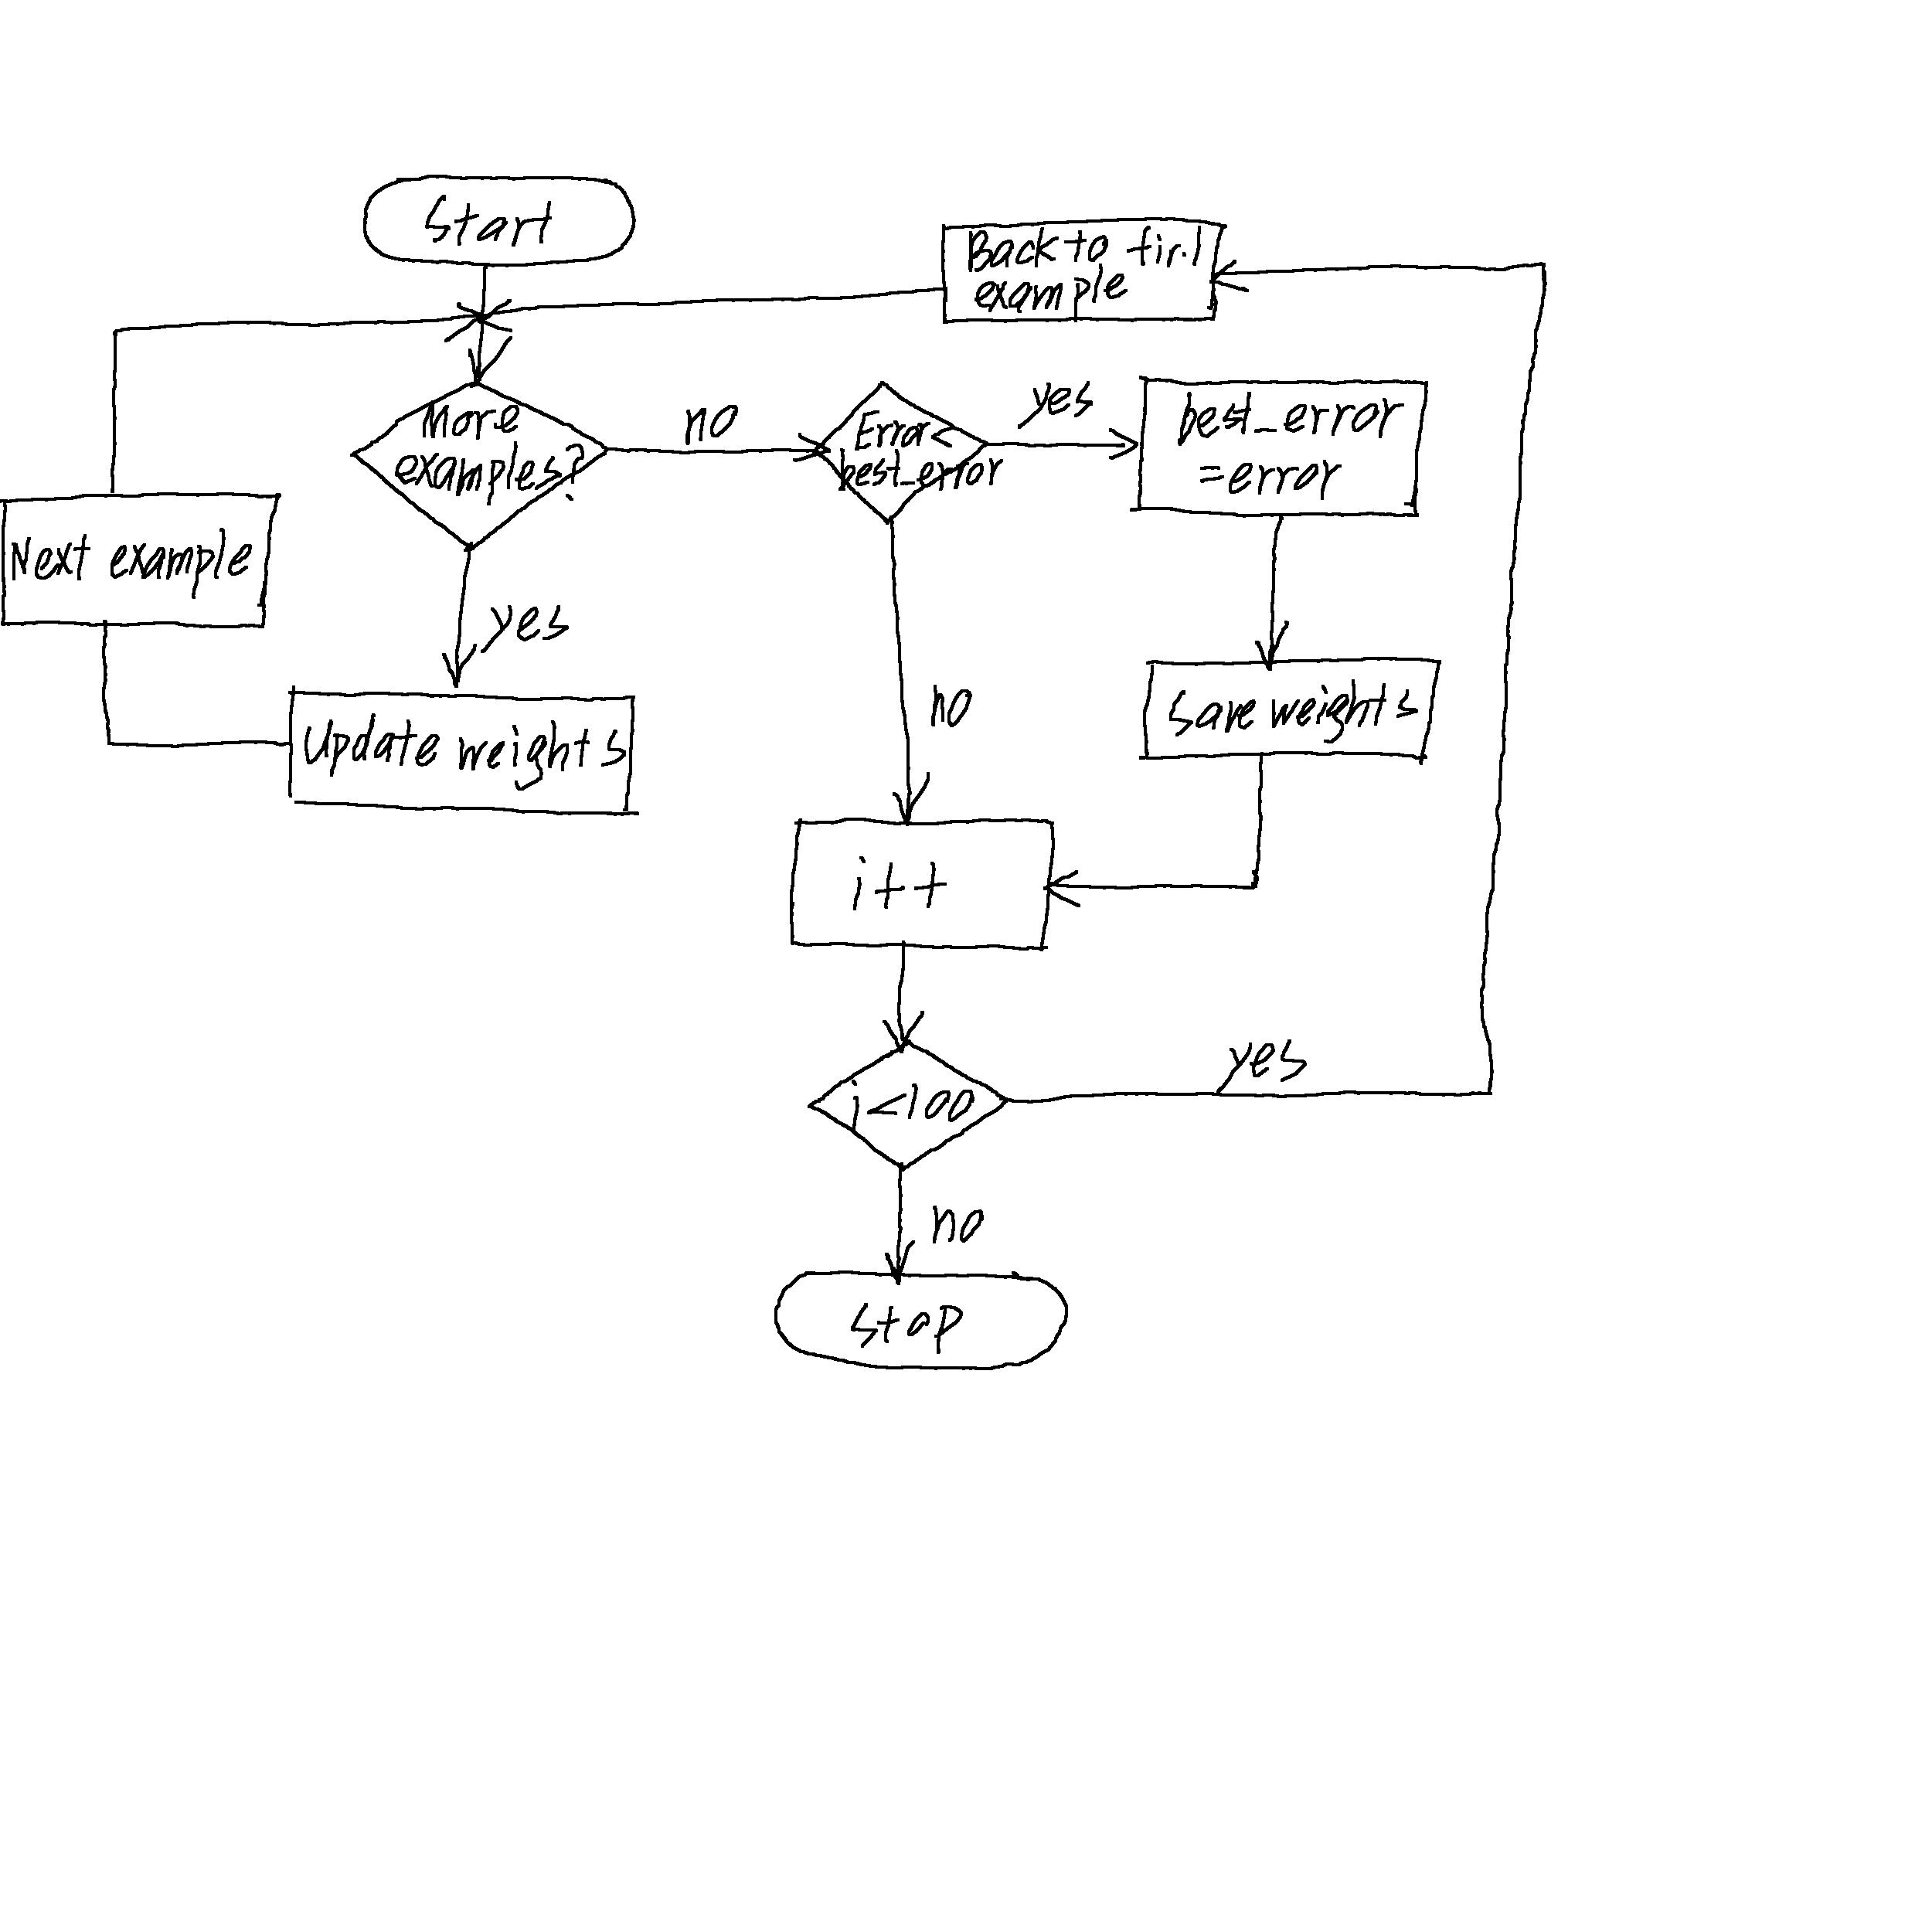 Start
Back to fir.l
example
More
examples?
no
Error<
best_error
yes
best_error
=error
Next example
yes
Update weights
no
Save weights
i++
i<100
yes
no
Stop